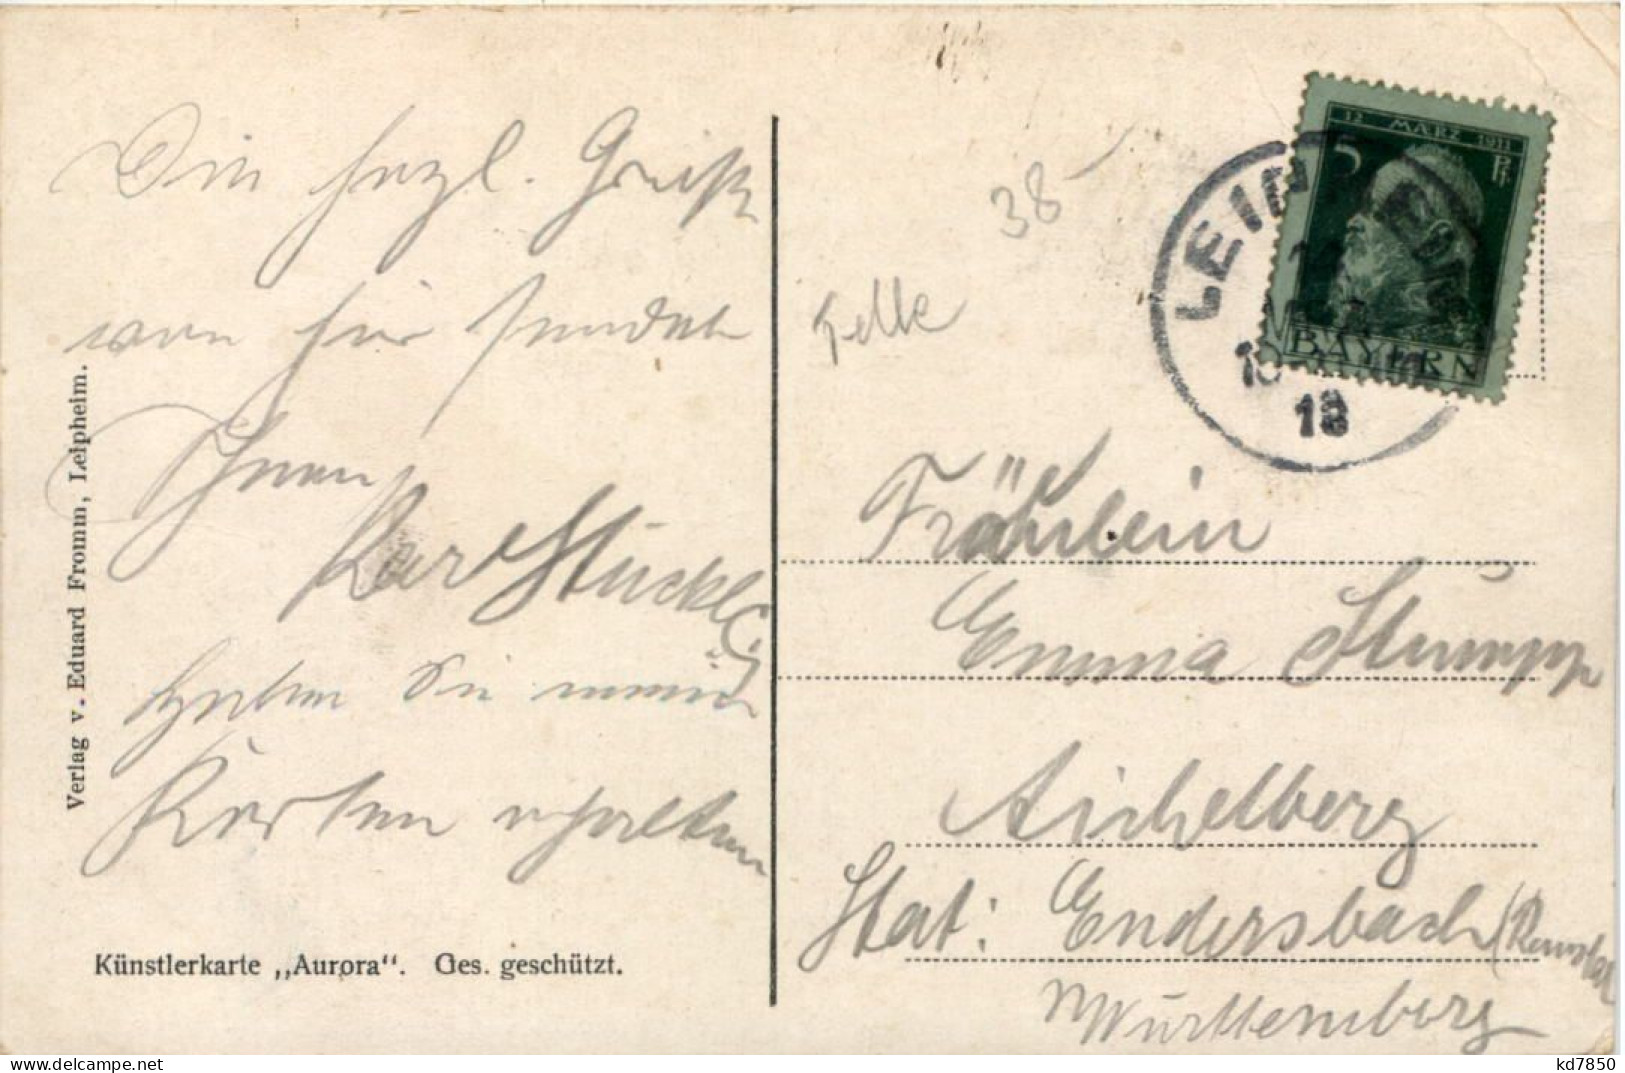 Die herzl. Grüße
von hier sendet
Ihnen
Karl Stückle
Haben Sie meine
Karten erhalten
Verlag v. Eduard Fromm, Leipheim.
Künstlerkarte „Aurora“. Ges. geschützt.
38
12 MÄRZ 1911
5 Pf
BAYERN
LEIPHEIM
18
Fräulein
Emma Stumpp
Aichelberg
Stat: Endersbach (Remsthal
Württemberg
kd7850